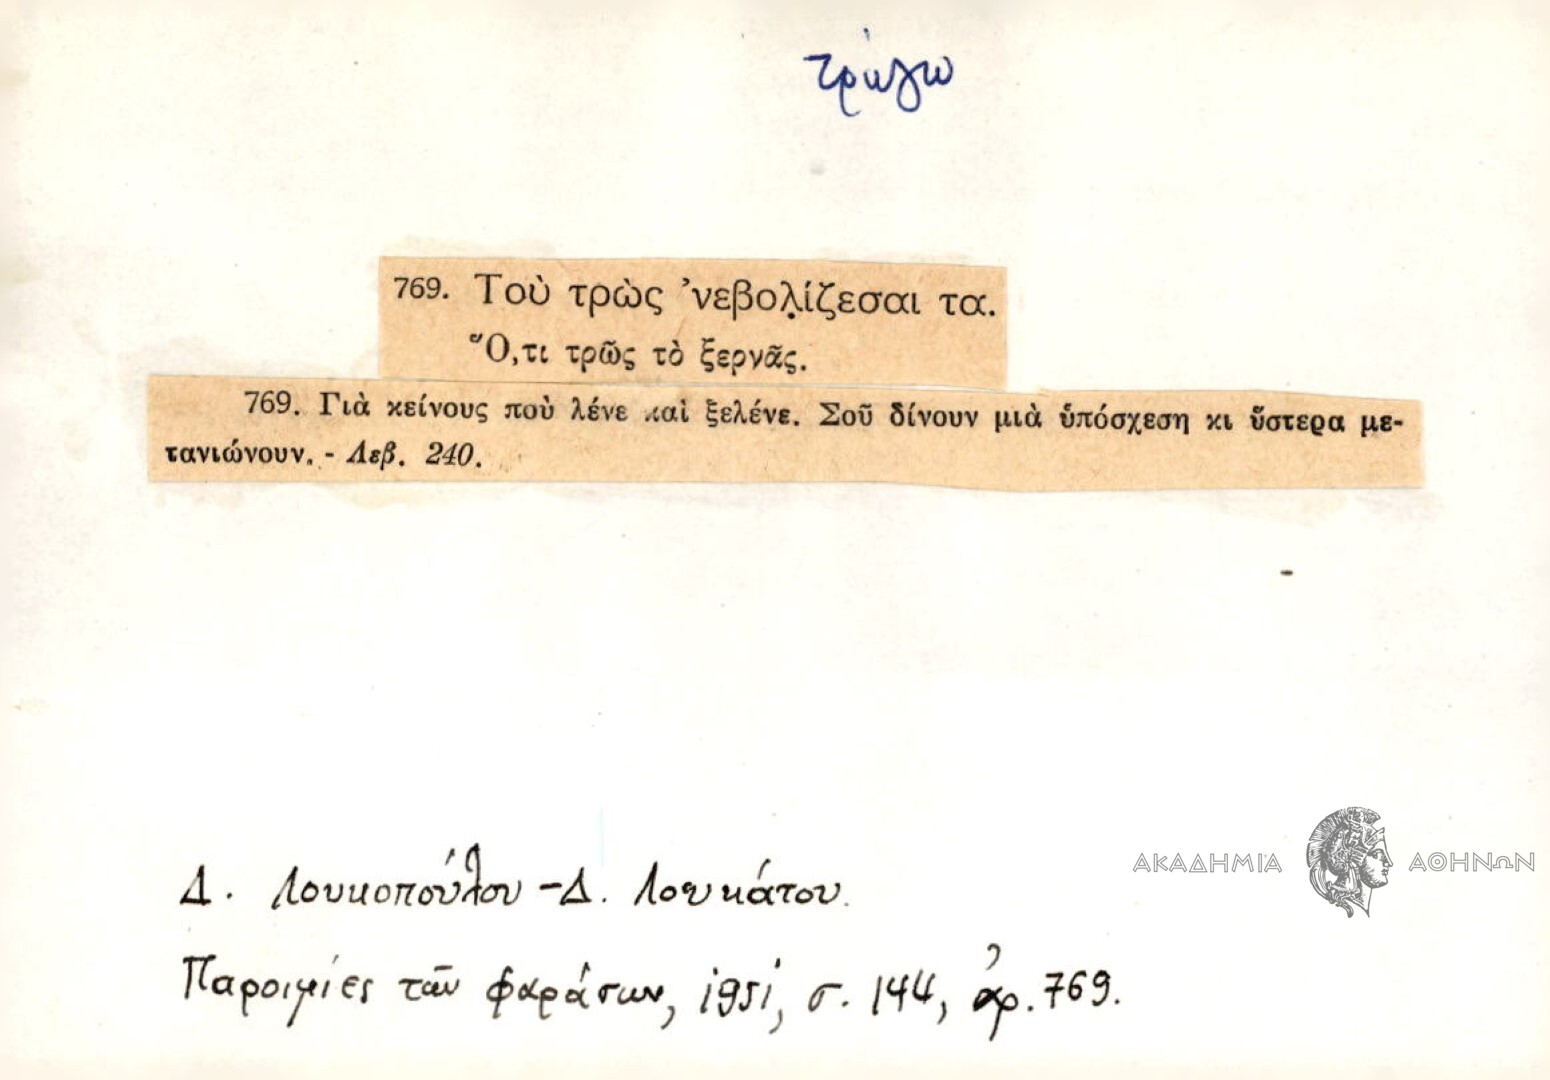 τρώγω
769. Τοὺ τρὼς ’νεβολ̣ίζεσαι τα.
Ὅ,τι τρῶς τὸ ξερνᾶς.
769. Γιὰ κείνους ποὺ λένε καὶ ξελένε. Σοῦ δίνουν μιὰ ὑπόσχεση κι ὕστερα με-
τανιώνουν. - Λεβ. 240.
ΑΚΑΔΗΜΙΑ ΑΘΗΝΩΝ
Δ. Λουκοπούλου - Δ. Λουκάτου.
Παροιμίες τῶν Φαράσων, 1951, σ. 144, ἀρ. 769.